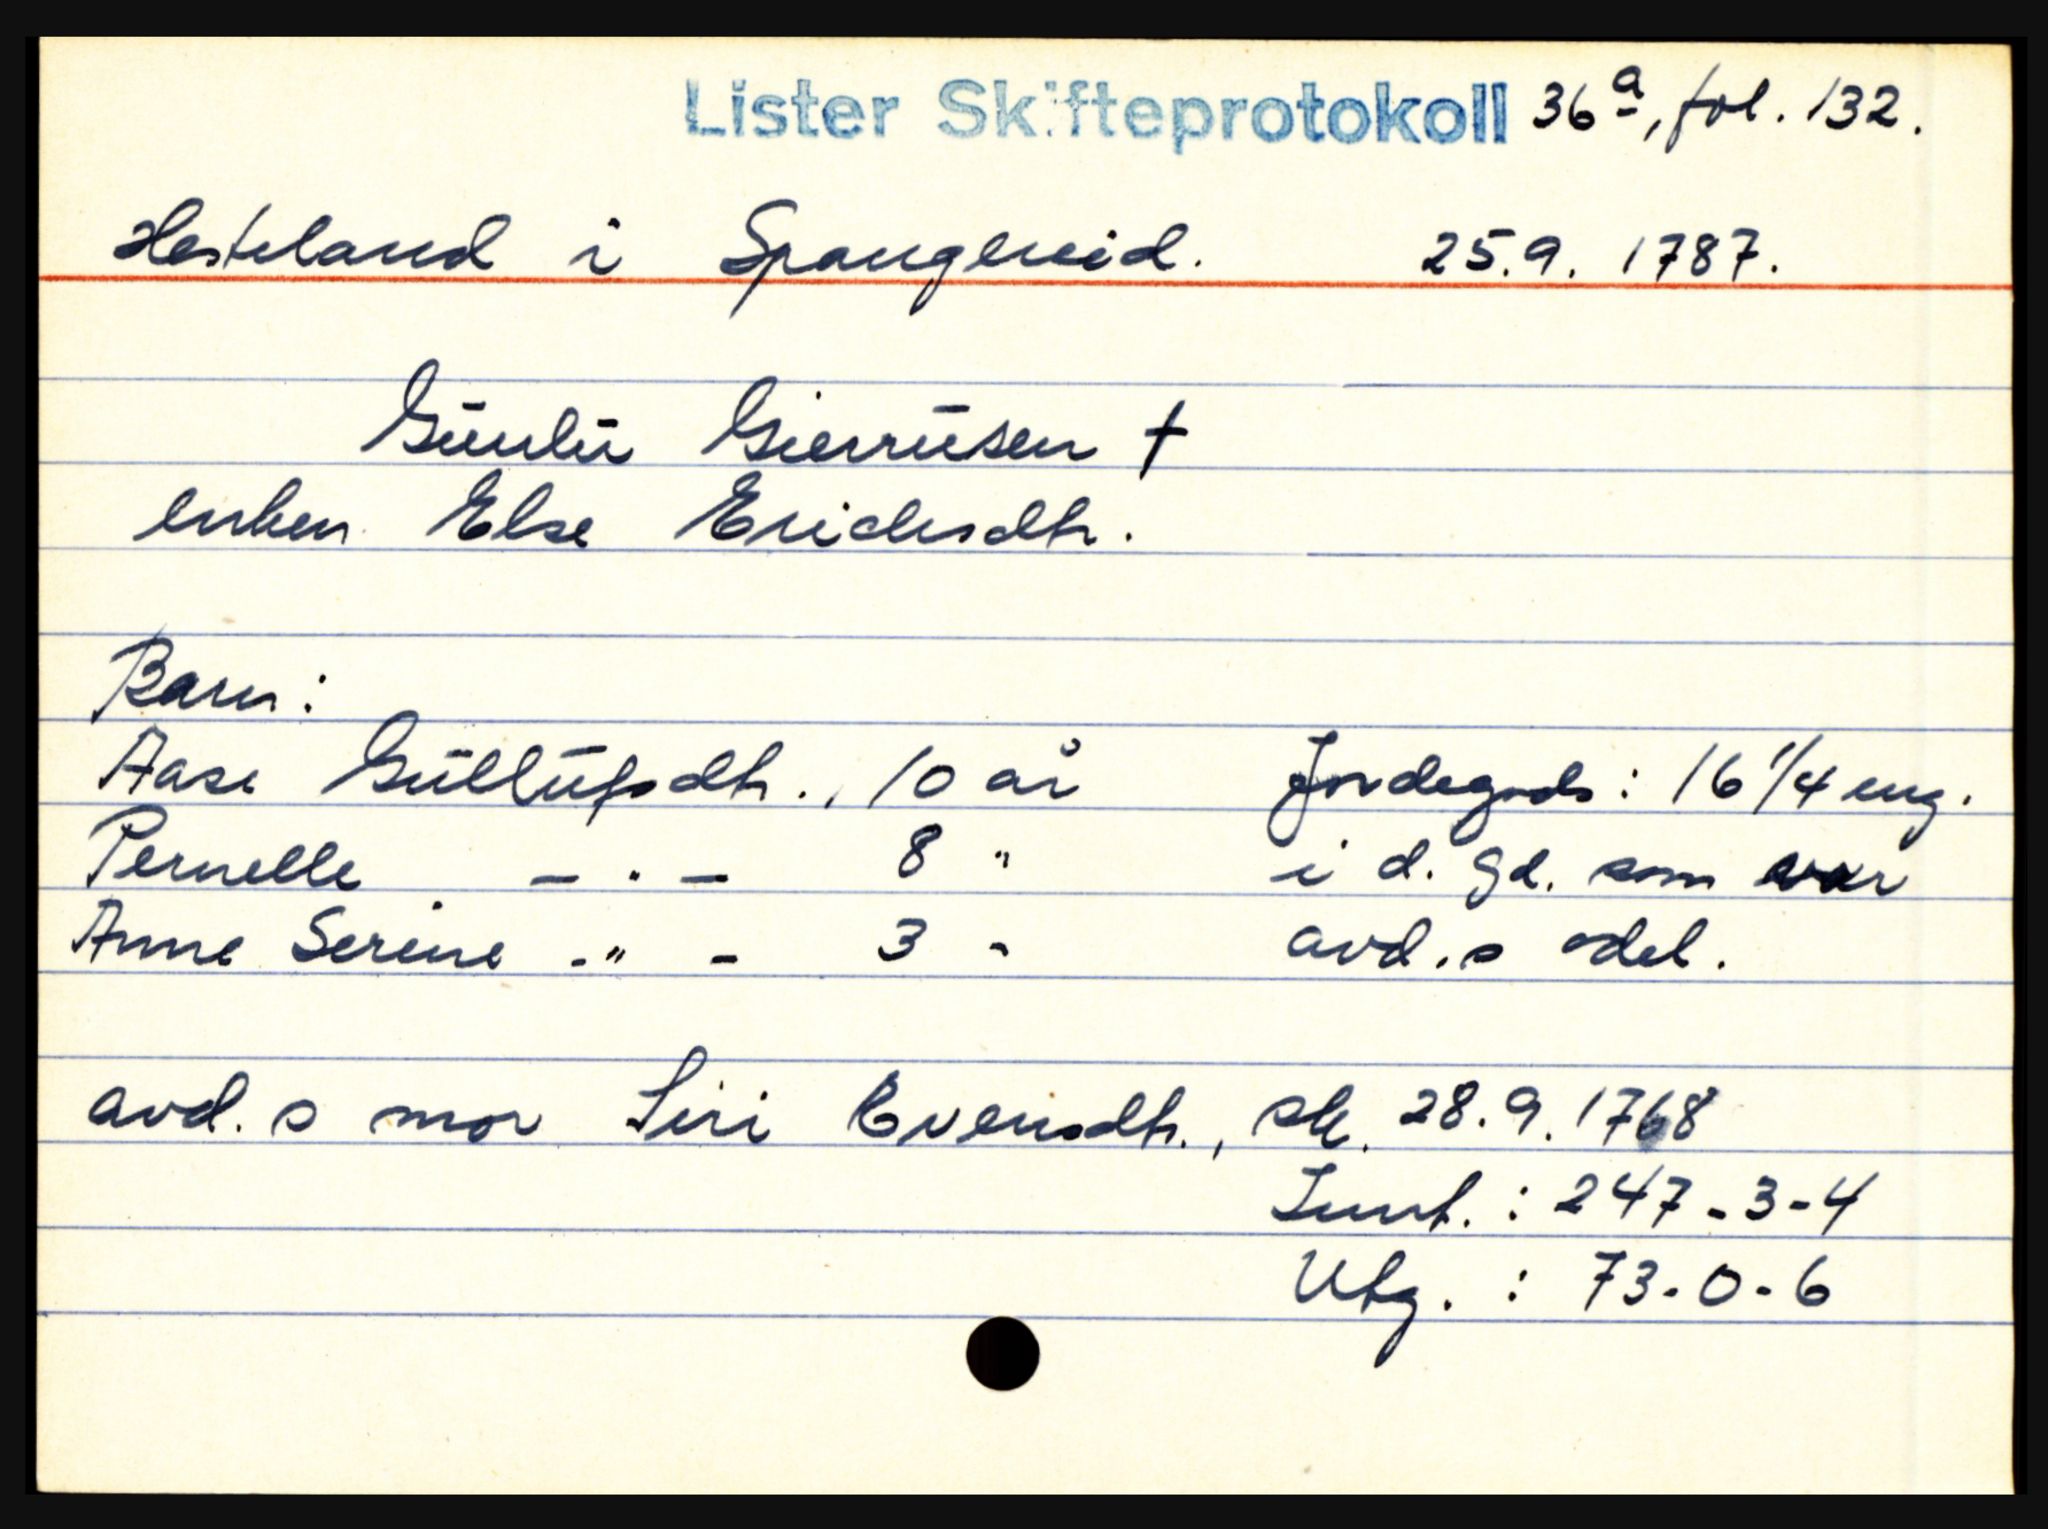 Lister Skifteprotokoll 36a, fol. 132.
Hesteland i Spangereid. 25.9. 1787.
Gunlu Gierusen †
enken Else Erichsdtr.
Barn:
Aase Gullufsdtr., 10 år Jordegods: 16 1/4 eng.
Pernelle — " — 8 " i d. gd. som var
Anne Serine - " - 3 " avd.s odel.
avd.s mor Siri Evensdtr., sk. 28.9.1768
Innt. : 247-3-4
Utg. : 73-0-6